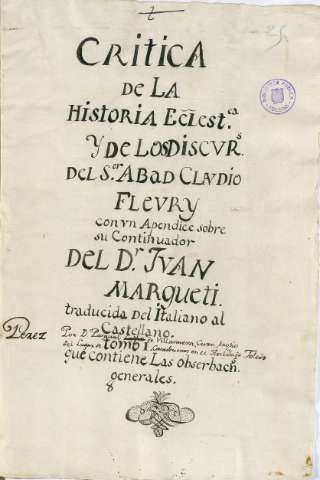 25,
CRITICA
DE LA
HISTORIA Eclest.ca
Y DE LOS DISCURs.
DEL S.or ABAD CLVDIO
FLEURY
con vn Apendice sobre
su Continuador
DEL D.r JVAN
MARQUETI.
traducida Del Italiano al
Castellano.
Perez
Por D. Pasqual Villanueva, Cura
del Lugar en el Arzbpdo Toledo
tomo I.
que contiene Las obserbacn.
generales.